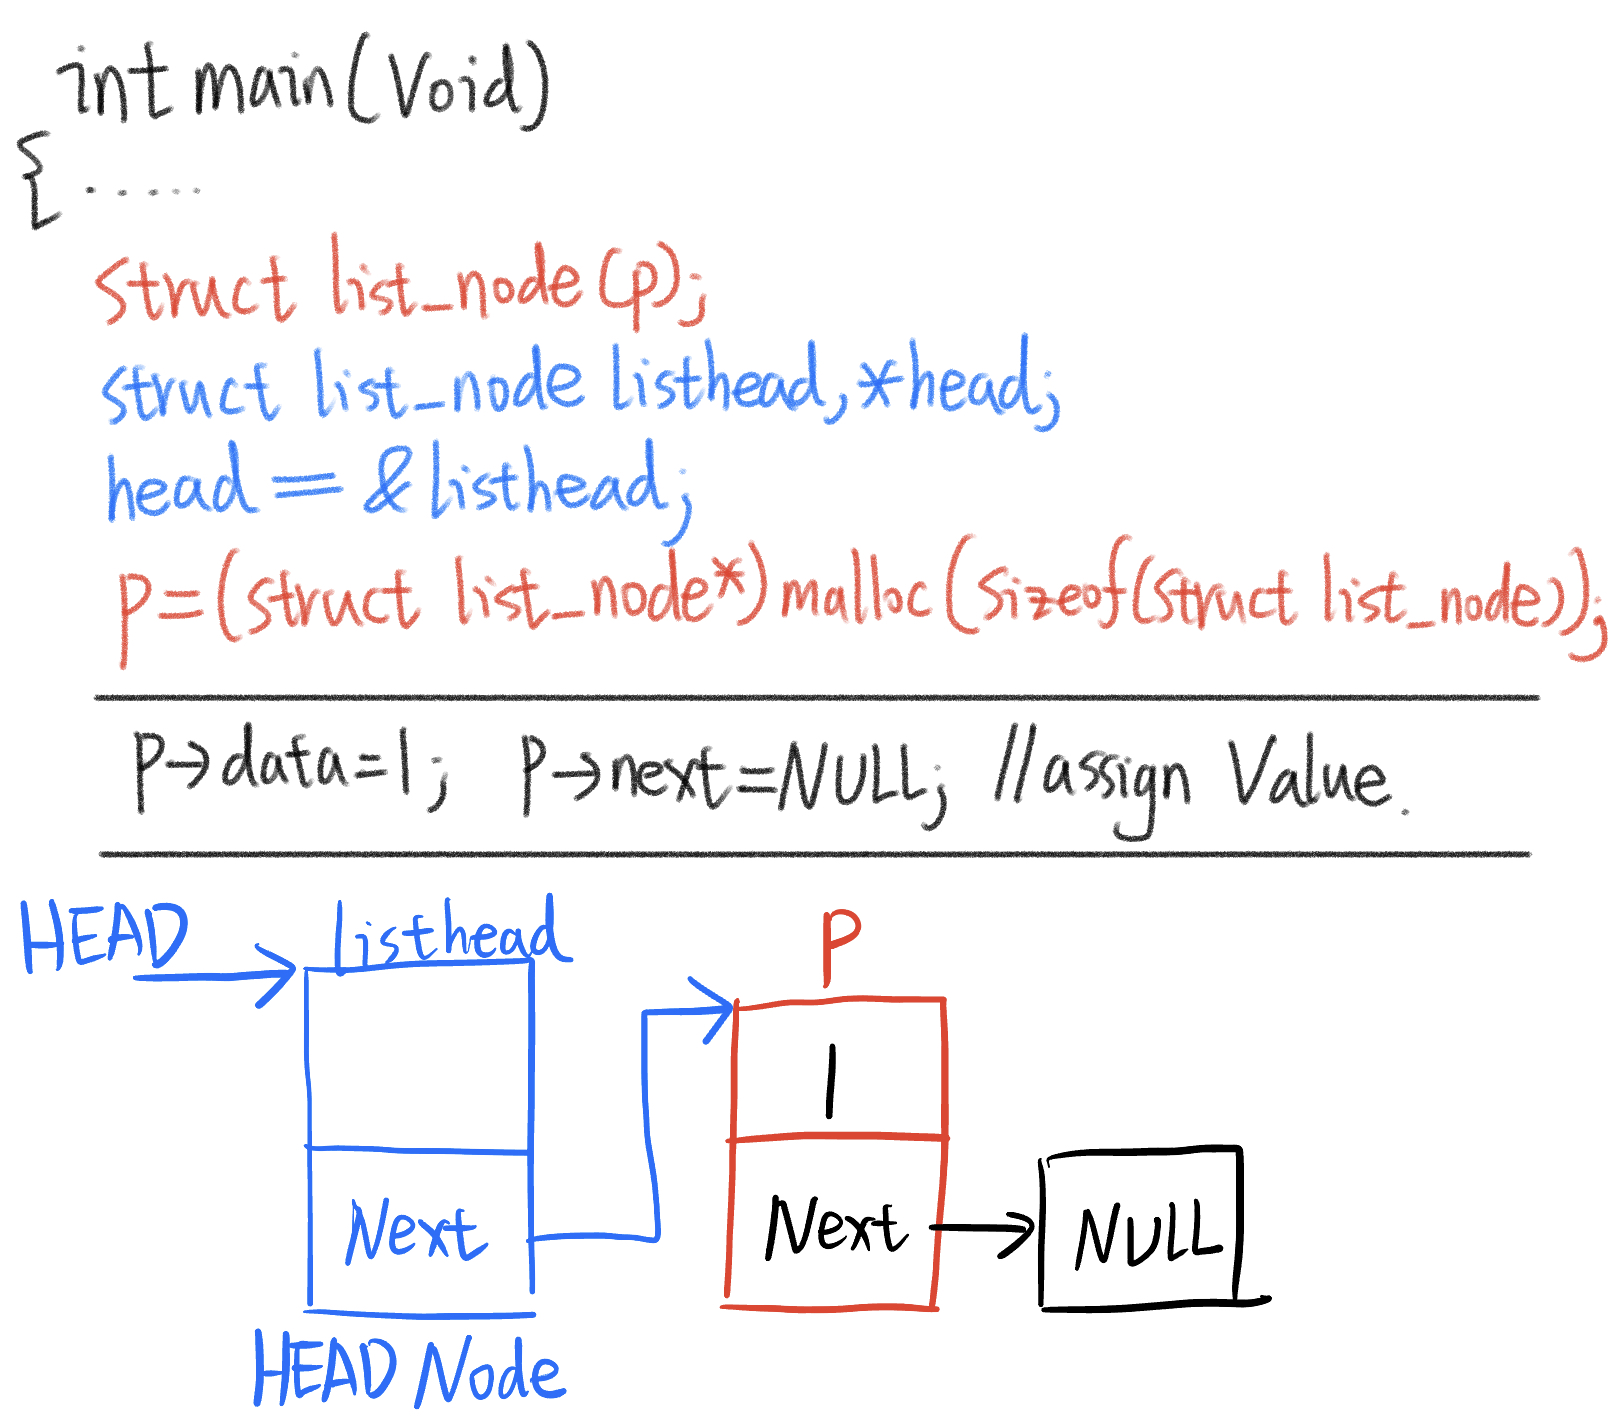 int main(Void)
{ ......
struct list_node (p);
struct list_node listhead,*head;
head = &listhead;
p=(struct list_node*)malloc(sizeof(struct list_node));
p→data=1; p→next=NULL; //assign Value.
HEAD
listhead
P
1
Next
Next
NULL
HEAD Node